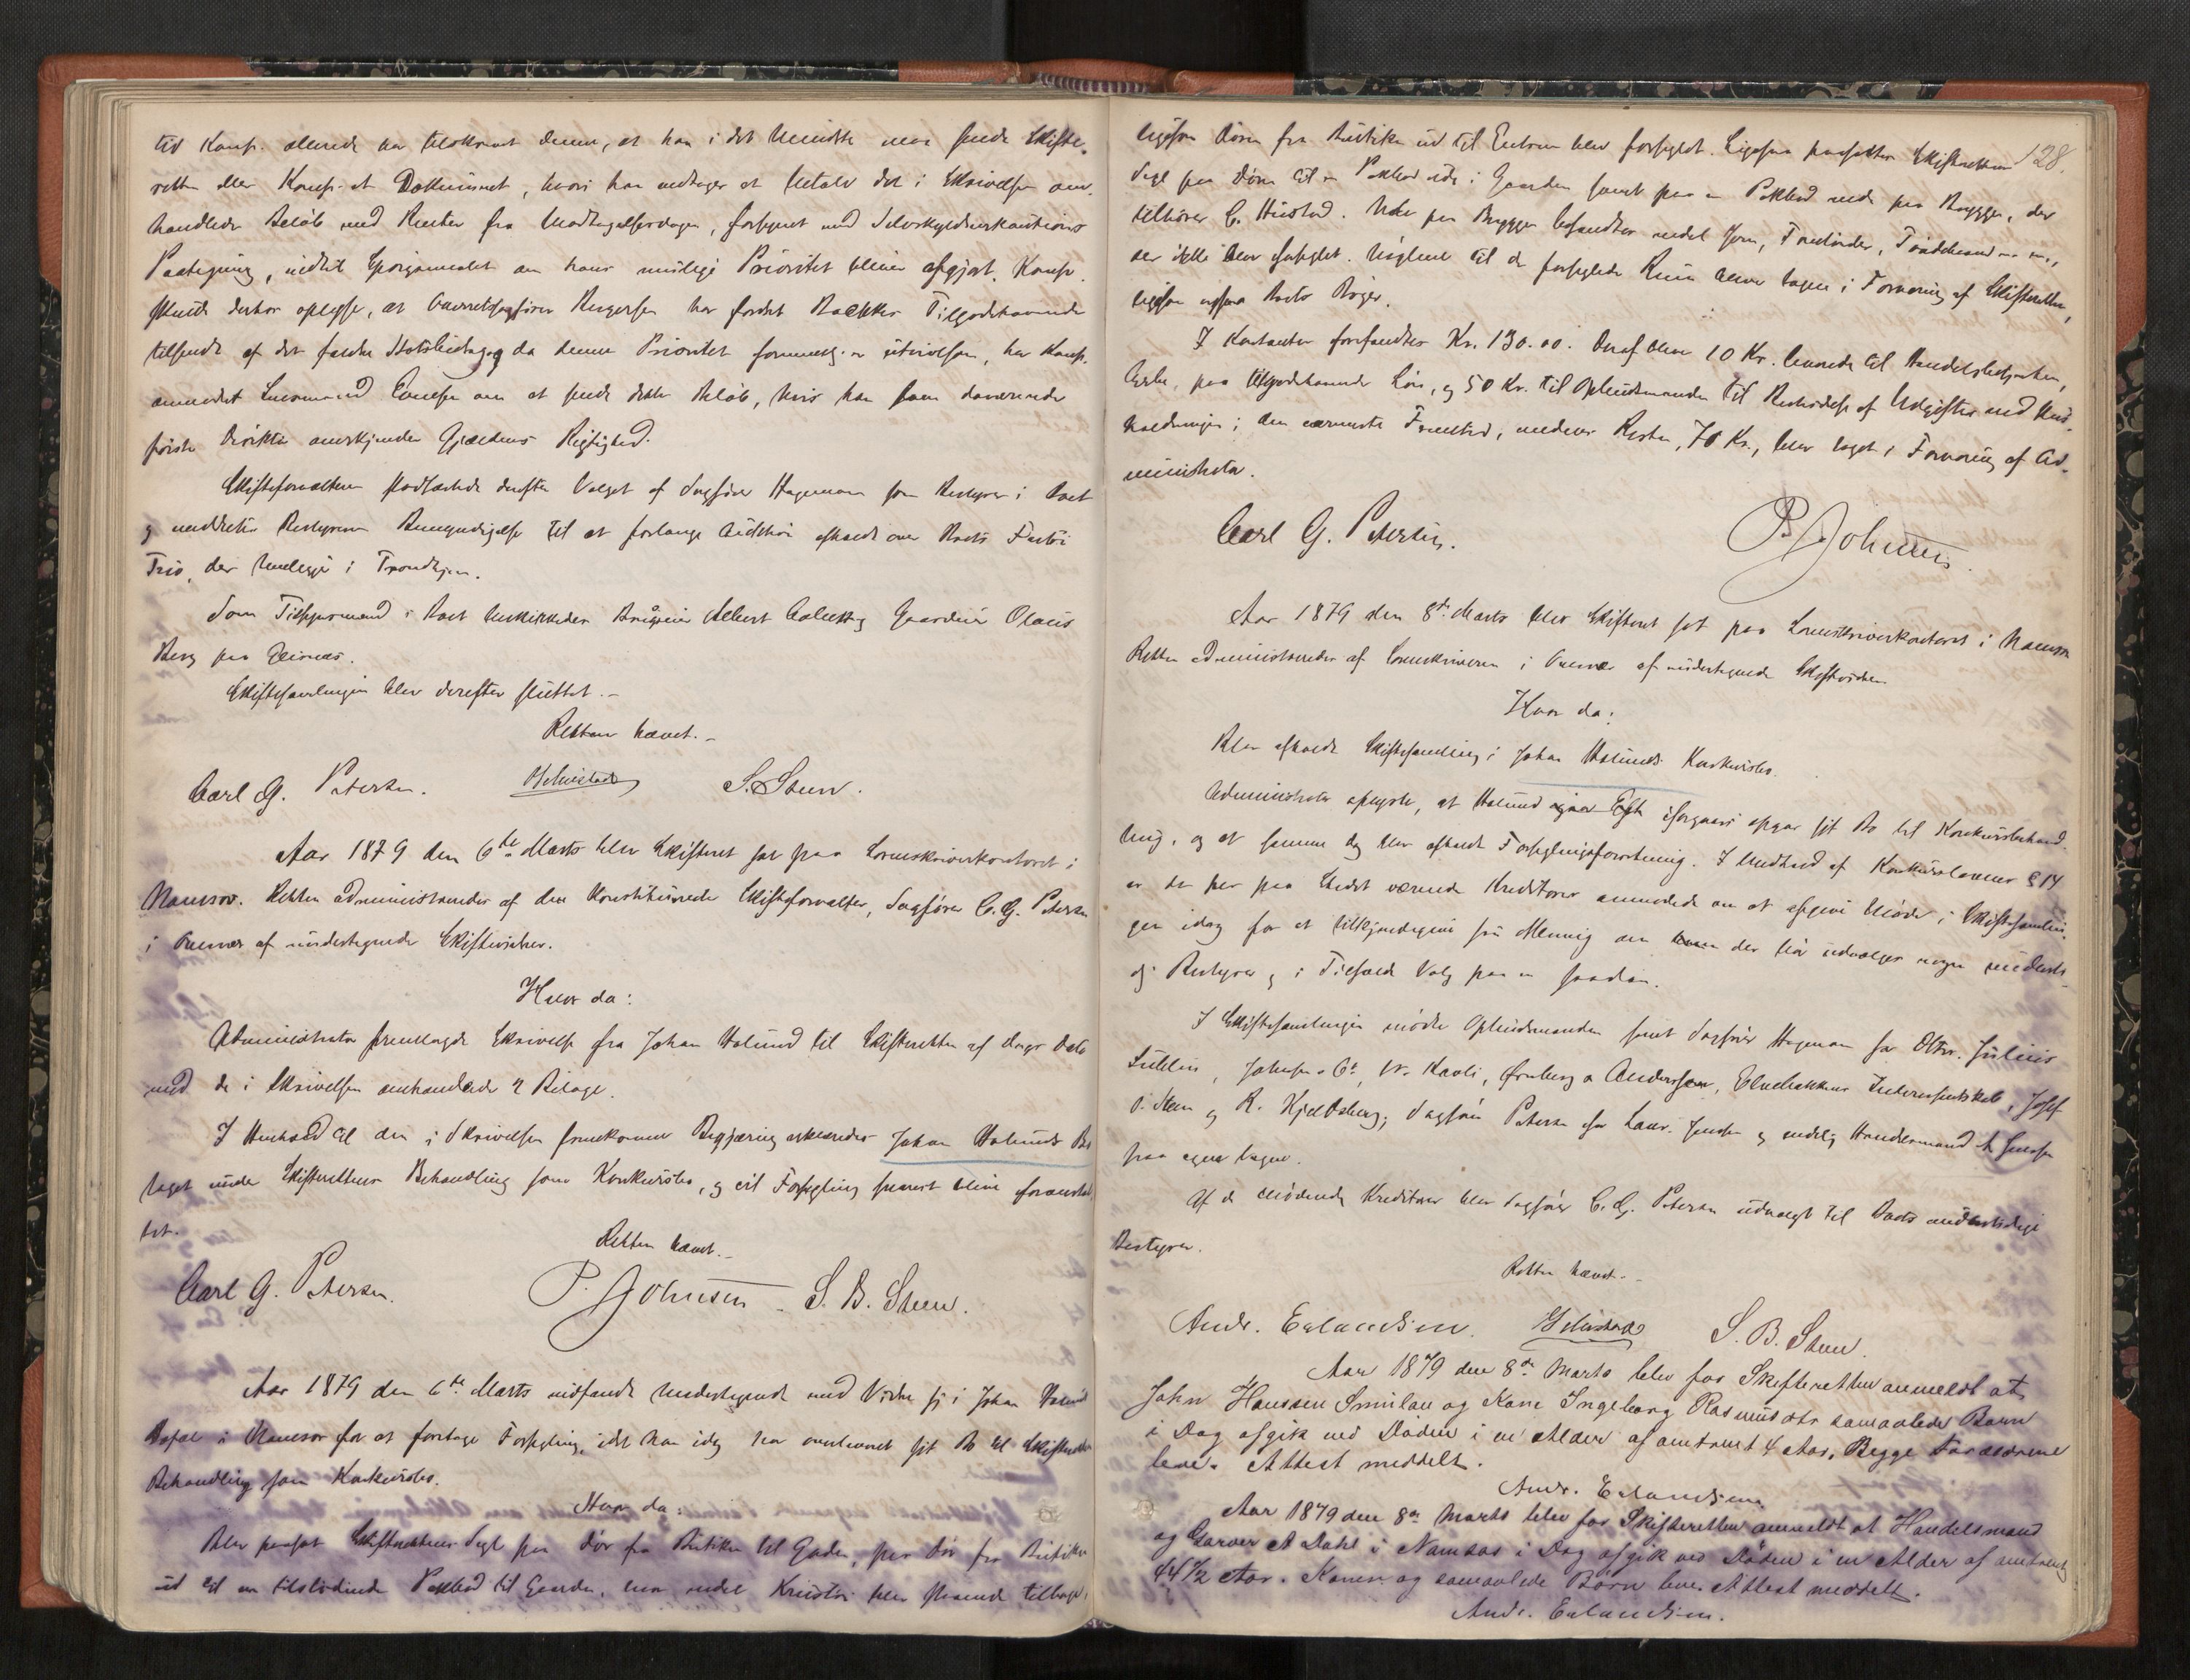 til Konf. allerede har tilskrevet denne, at han i det Mindste maa sende Skifte-
retten eller Konf. et Dokument, hvori han vedtager at betale det i Skrivelsen om-
handlede Beløb med Renter fra Modtagelsesdagen, forsynet med Selvskyldnerkautions
Paategning, indtil Spørgsmaalet om hans mulige Prioritet bliver afgjort. Konf.
skulde derhos oplyse, at Overretssagfører har fordret Tilgodehavende
tilsendt af det da denne Prioritet er utvivlsom, har Konf.
anmodet Lensmand om at sende dette Beløb, hvis han som daværende
første anerkjender Gjældens Rigtighed.
Skifteforvalteren stadfæstede derefter Valget af Sagfører Hagemann som Bestyrer i Boet
og meddelte Bestyreren Bemyndigelse til at forlange Auktion afholdt over Boets
Trio, der henligger i Trondhjem.
Som Tilsynsmænd i Boet beskikkedes Albert og Gaardeier Olaus
Berg paa
Skiftesamlingen blev derefter sluttet.-
Retten hævet.-
Carl G. Petersen. S. Steen.
Aar 1879 den 6te Marts blev Skifteret sat paa Sorenskriverkontoret i
Namsos. Retten administreredes af den konstituerede Skifteforvalter, Sagfører C. G. Petersen
i Overvær af undertegnede Skiftevidner.
Hvor da:
Administrator fremlagde Skrivelse fra Johan Hølund til Skifteretten af Dags Dato
med de i Skrivelsen omhandlede 2 Bilage.
I Henhold til den i Skrivelsen fremkomne Begjæring erklæredes Johan Hølunds Bo
taget under Skifterettens Behandling som Konkursbo, og vil Forsegling snarest blive foranstal-
tet.
Retten hævet.-
Carl G. Petersen. P. Johnsen. S. B. Steen.
Aar 1879 den 6te Marts indfandt Undertegnede med Vidne sig i Johan Hølund
Bopæl i Namsos for at foretage Forsegling, idet han idag har overleveret sit Bo til Skifterettens
Behandling som Konkursbo.
Hvor da:
Blev paasat Skifterettens Segl paa Dør fra Butiken til Gaden, paa Dør fra Butiken
ud til en tilstødende Pakbod til Gaarden, hvor endel blev tilbage,
128.
ligesom Døren fra Butiken ud til Entreen blev forseglet. Ligesaa paasattes Skifterettens
Segl paa Døren til en Pakbod ude i Gaarden samt paa en Pakbod nede paa Bryggen, der
tilhører C. Hustad. Ude paa Bryggen befandtes endel Jern,
der ikke blev forseglet. Nøglerne til de forseglede Rum blev tagne i Forvaring af Skifteretten,
ligesom ogsaa Boets Bøger.
I Kontanter forefandtes Kr. 130.00. Deraf blev 10 Kr. leverede til Handelsbetjenten,
paa tilgodehavende Løn, og 50 Kr. til Opbudsmanden til Bestridelse af Udgifter ved Hus-
holdningen i den nærmeste Fremtid, medens Resten, 70 Kr., blev taget i Forvaring af Ad-
ministrator.
Carl G. Petersen. P. Johnsen.
Aar 1879 den 8de Marts blev Skifteret sat paa Sorenskriverkontoret i Namsos
Retten administreredes af Sorenskriveren i Overvær af undertegnede Skiftevidner.
Hvor da:
Blev afholdt Skiftesamling i Johan Hølunds Konkursbo.
Administrator oplyste, at Hølund iforgaars opgav sit Bo til Konkursbehand-
ling, og at samme Dag blev afholdt Forseglingsforretning. I Medhold af Konkurslovens § 14
er de her paa Stedet værende Kreditorer anmodede om at afgive Møde i Skiftesamlin-
gen idag for at tilkjendegive sin Mening om der bør udvælges nogen midlerti-
dig Bestyrer og i Tilfælde Valg paa en saadan.
I Skiftesamlingen mødte Opbudsmanden samt Sagfører Hagemann for Julius
Johnsen & Co, W. Kavli, Ørnberg & Anderssen, Interessentskab, Josef
P. Steen og R. Hjeldsberg; Sagfører Petersen for Laur. Jensen og endelig Handelsmand Jenssen
paa egne Vegne.
Af de mødende Kreditorer blev Sagfører C. G. Petersen udvalgt til Boets midlertidige
Bestyrer.
Retten hævet.-
Andr. Erlandsen. S. B. Steen.
Aar 1879 den 8de Marts blev for Skifteretten anmeldt at
John Hanssen Smulan og Kone Ingeborg Rasmusdtr samavlede Barn
i Dag afgik ved Døden i en Alder af omtrent 4 Aar. Begge Forældrene
leve. Attest meddelt.
Andr. Erlandsen.
Aar 1879 den 8de Marts blev for Skifteretten anmeldt at Handelsmand
og Garver A Dahl i Namsos i Dag afgik ved Døden i en Alder af omtrent
44 1/2 Aar. Konen og samavlede Børn leve. Attest meddelt.
Andr. Erlandsen.